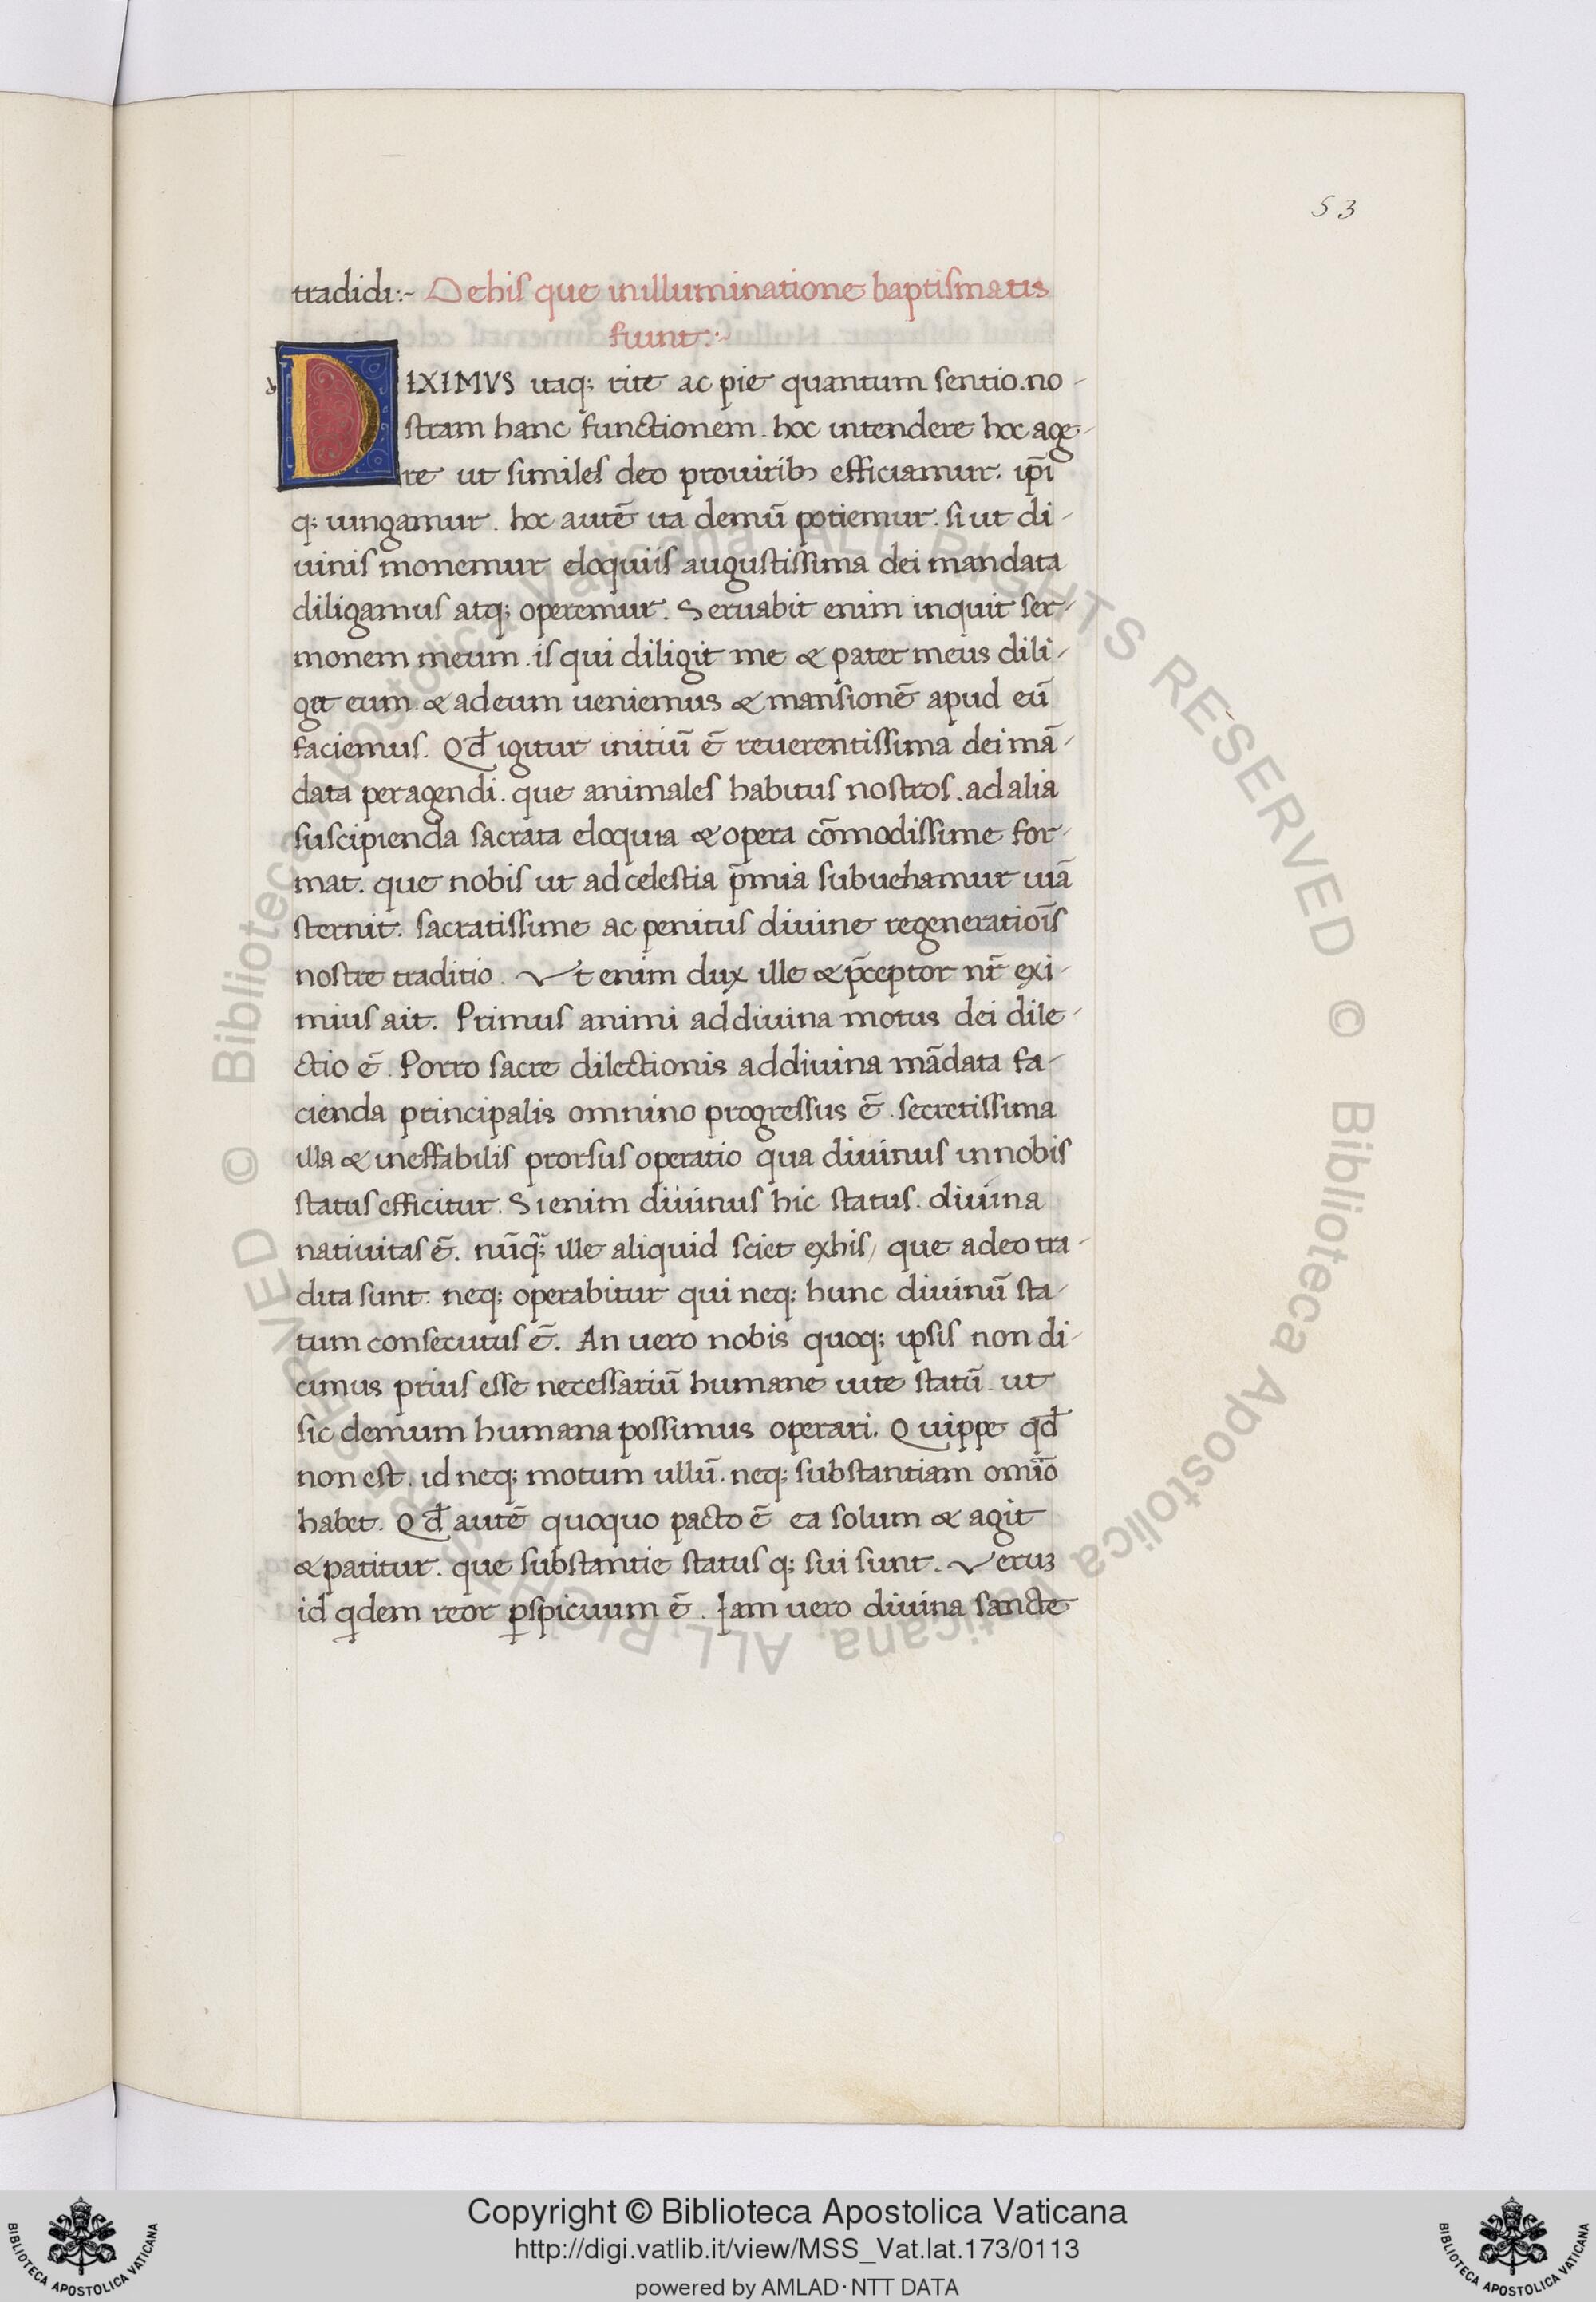 53
tradidi:- De his que in illuminatione baptismatis
fiunt:-
DIXIMVS itaq; rite ac pie quantum sentio. no-
stram hanc functionem. hoc intendere hoc age-
re ut similes deo pro uirib3 efficiamur. ip̄i
q; iungamur. hoc autē ita demū potiemur. si ut di-
uinis monemur eloquiis augustissima dei mandata
diligamus atq; operemur. Seruabit enim inquit ser-
monem meum. is qui diligit me & pater meus dili-
get eum. & ad eum ueniemus & mansionē apud eū
faciemus. Qd̄ igitur initiū ē reuerentissima dei mā-
data peragendi. que animales habitus nostros. ad alia
suscipienda sacrata eloquia & opera cōmodissime for-
mat. que nobis ut ad celestia p̄mia subuehamur uiā
sternit. sacratissime ac penitus diuine regeneratiōis
nostre traditio. Vt enim dux ille & p̄ceptor nr̄ exi-
mius ait. Primus animi ad diuina motus dei dile-
ctio ē. Porro sacre dilectionis ad diuina mādata fa-
cienda principalis omnino progressus ē. secretissima
illa & ineffabilis prorsus operatio qua diuinus in nobis
status efficitur. Si enim diuinus hic status. diuina
natiuitas ē. nūq̄; ille aliquid sciet ex his, que a deo tra-
dita sunt. neq; operabitur qui neq; hunc diuinū sta-
tum consecutus ē. An uero nobis quoq; ipsis non di-
cimus prius esse necessariū humane uite statū. ut
sic demum humana possimus operari. Quippe qd̄
non est. id neq; motum ullū. neq; substantiam omīo
habet. Qd̄ autē quoquo pacto ē ea solum & agit
& patitur. que substantie status q; sui sunt. Veruʒ
id qdem reor ꝑspicuum ē. Iam uero diuina sancte
© Biblioteca Apostolica Vaticana. ALL RIGHTS RESERVED © Biblioteca Apostolica Vaticana. ALL RIGHTS RESERVED
Copyright © Biblioteca Apostolica Vaticana
http://digi.vatlib.it/view/MSS_Vat.lat.173/0113
powered by AMLAD·NTT DATA
BIBLIOTECA APOSTOLICA VATICANA
BIBLIOTECA APOSTOLICA VATICANA